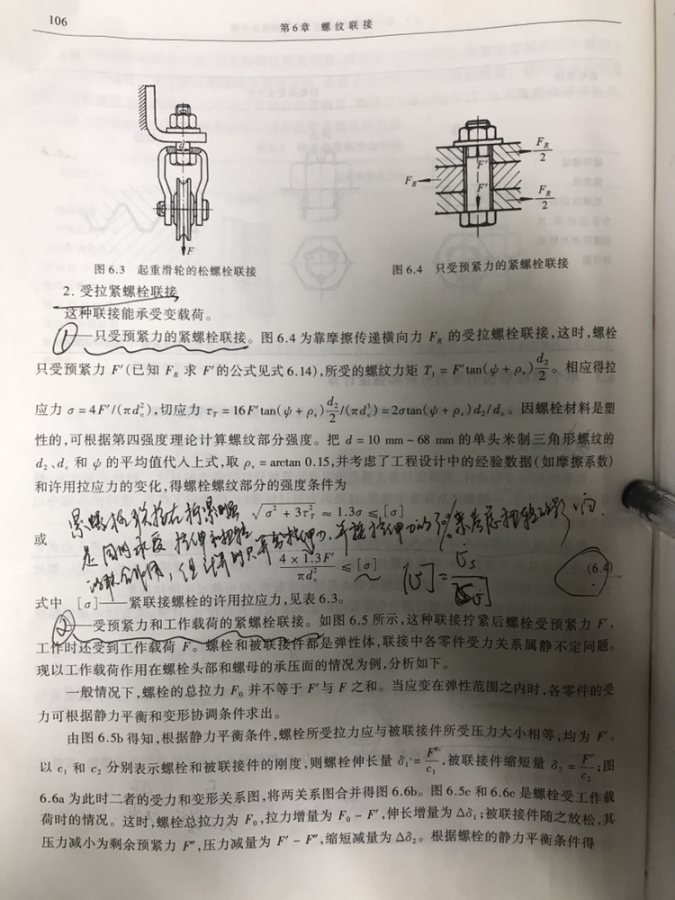 106
第6章 螺纹联接
F_R/2
F_R
F'
F'
F_R/2
F
图 6.3 起重滑轮的松螺栓联接
图 6.4 只受预紧力的紧螺栓联接
2. 受拉紧螺栓联接
这种联接能承受变载荷。
① 只受预紧力的紧螺栓联接。图 6.4 为靠摩擦传递横向力 F_R 的受拉螺栓联接,这时,螺栓
只受预紧力 F'(已知 F_R 求 F'的公式见式 6.14),所受的螺纹力矩 T₁ = F'tan(ψ + ρᵥ) d₂/2。相应得拉
应力 σ = 4F'/(πd_c²),切应力 τ_T = 16F'tan(ψ + ρᵥ) d₂/2 /(πd_c³) = 2σtan(ψ + ρᵥ)d₂/d_c。因螺栓材料是塑
性的,可根据第四强度理论计算螺纹部分强度。把 d = 10 mm ~ 68 mm 的单头米制三角形螺纹的
d₂、d_c 和 ψ 的平均值代入上式,取 ρᵥ = arctan 0.15,并考虑了工程设计中的经验数据(如摩擦系数)
和许用拉应力的变化,得螺栓螺纹部分的强度条件为
√(σ² + 3τ_T²) ≈ 1.3σ ≤ [σ]
紧螺栓联接在拧紧时
或
是同时承受拉伸和扭转
4 × 1.3F'/(πd_c²) ≤ [σ]
(6.4)
[σ] = σ_s/
式中 [σ]——紧联接螺栓的许用拉应力,见表 6.3。
② 受预紧力和工作载荷的紧螺栓联接。如图 6.5 所示,这种联接拧紧后螺栓受预紧力 F',
工作时还受到工作载荷 F。螺栓和被联接件都是弹性体,联接中各零件受力关系属静不定问题。
现以工作载荷作用在螺栓头部和螺母的承压面的情况为例,分析如下。
一般情况下,螺栓的总拉力 F₀ 并不等于 F'与 F 之和。当应变在弹性范围之内时,各零件的受
力可根据静力平衡和变形协调条件求出。
由图 6.5b 得知,根据静力平衡条件,螺栓所受拉力应与被联接件所受压力大小相等,均为 F'。
以 c₁ 和 c₂ 分别表示螺栓和被联接件的刚度,则螺栓伸长量 δ₁ = F'/c₁,被联接件缩短量 δ₂ = F'/c₂;图
6.6a 为此时二者的受力和变形关系图,将两关系图合并得图 6.6b。图 6.5c 和 6.6c 是螺栓受工作载
荷时的情况。这时,螺栓总拉力为 F₀,拉力增量为 F₀ - F',伸长增量为 Δδ₁;被联接件随之放松,其
压力减小为剩余预紧力 F",压力减量为 F' - F",缩短减量为 Δδ₂。根据螺栓的静力平衡条件得